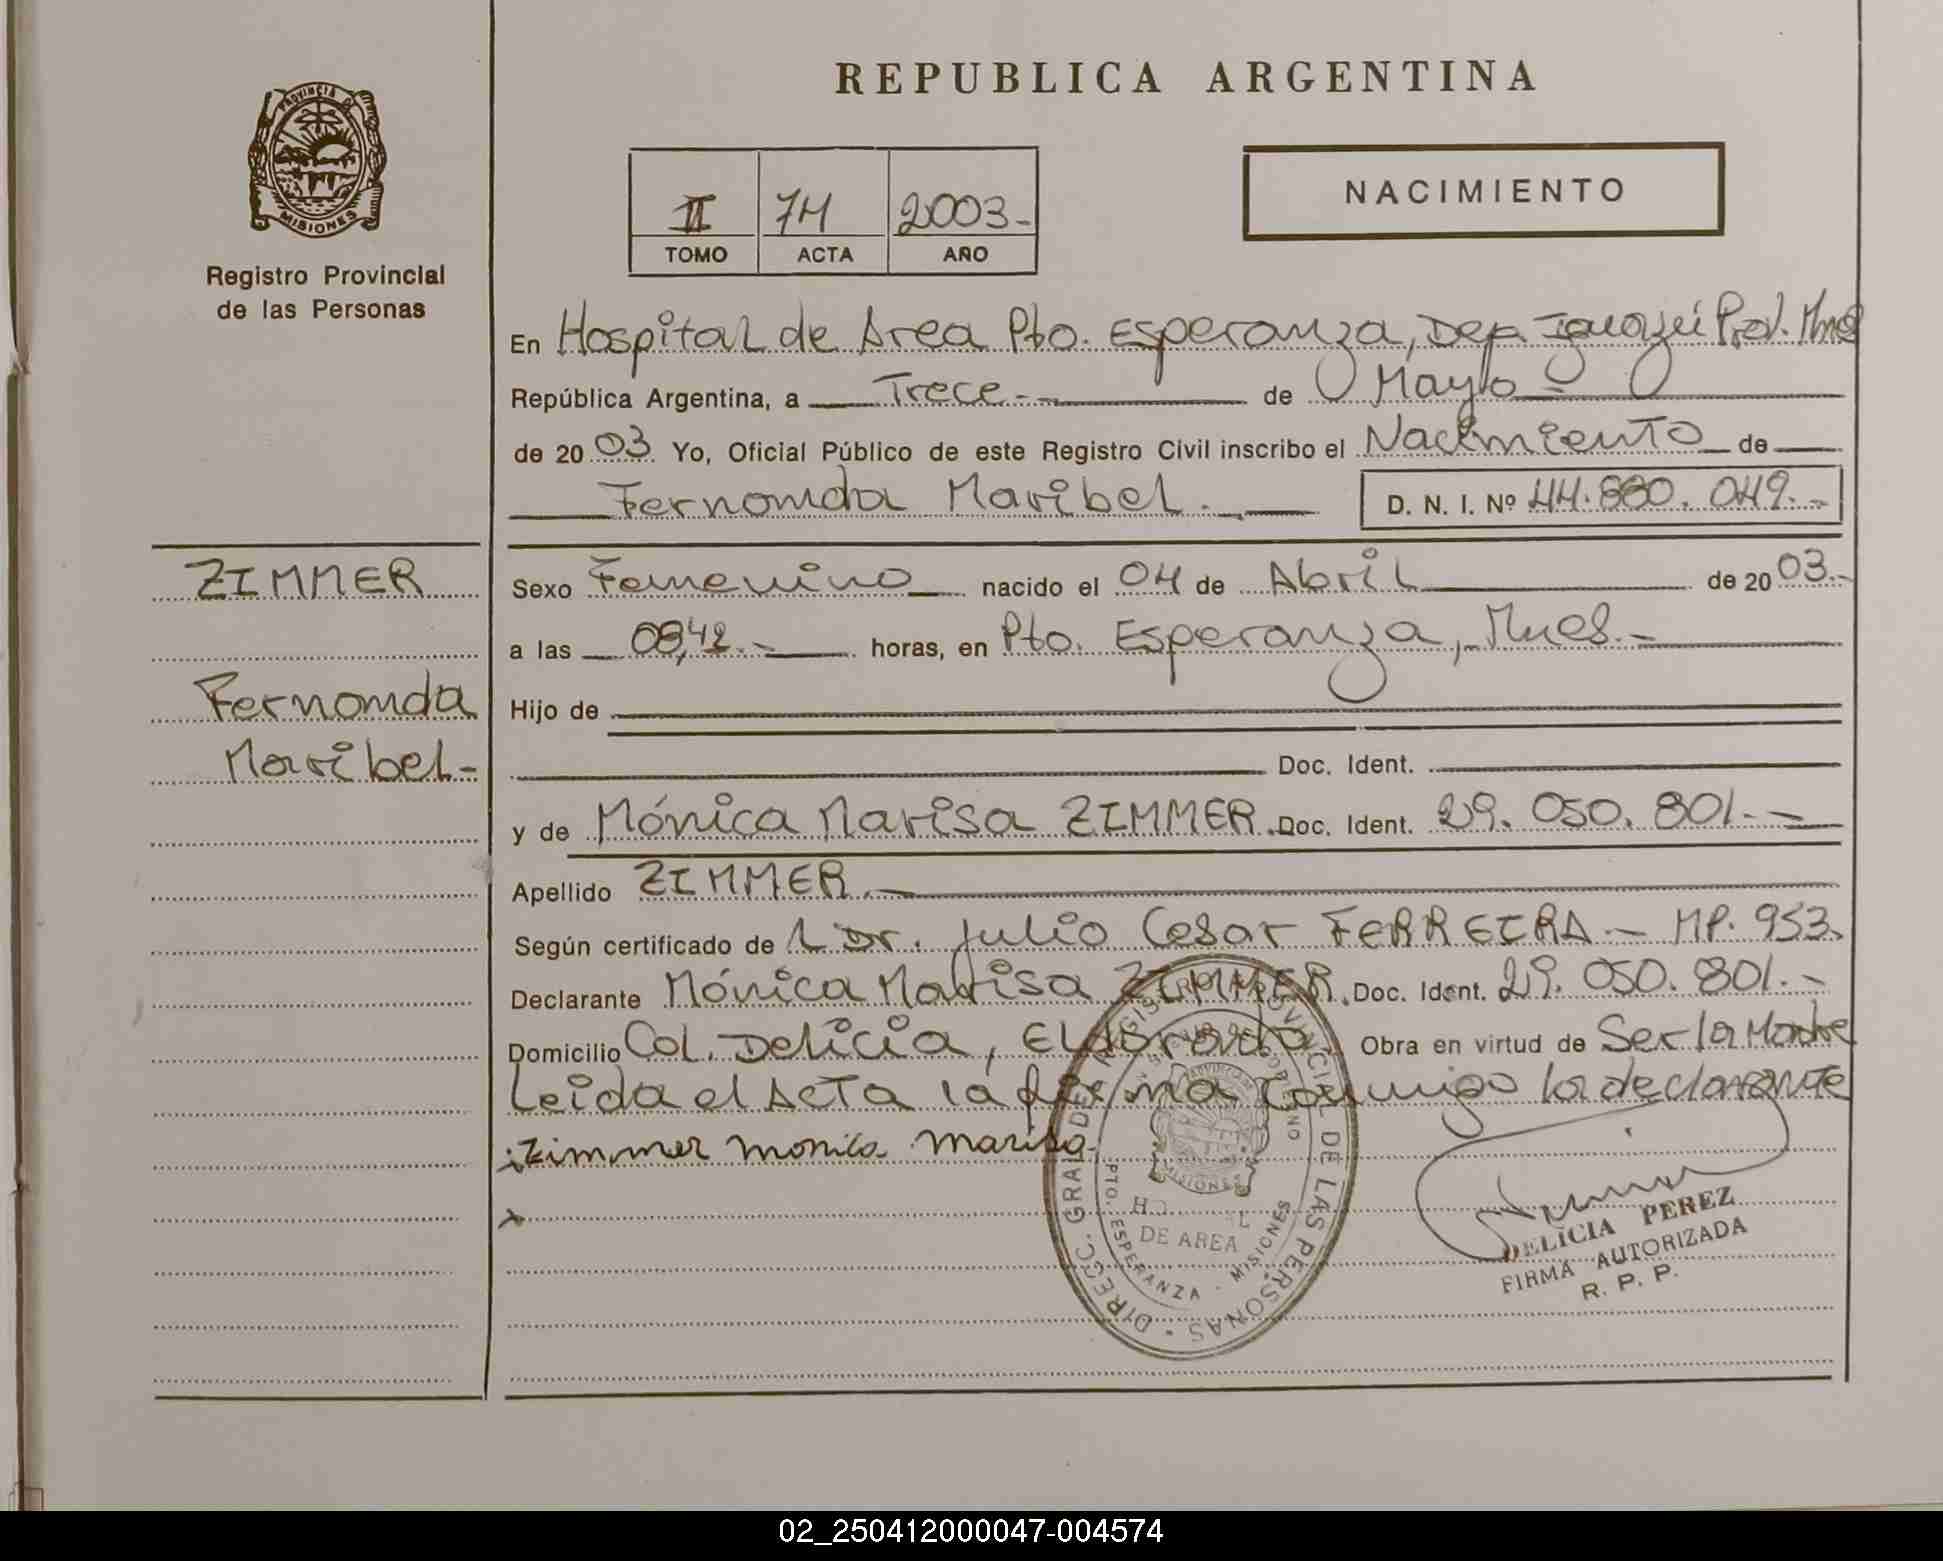 REPUBLICA ARGENTINA
PROVINCIA DE
MISIONES
Registro Provincial
de las Personas
II 74 2003-
TOMO ACTA AÑO
NACIMIENTO
En Hospital de Area Pto. Esperanza, Dep. Iguazú Prov. Mnes
República Argentina, a Trece.- de Mayo-
de 2003 Yo, Oficial Público de este Registro Civil inscribo el Nacimiento de
Fernanda Maribel.- D. N. I. Nº 44.880.049.-
ZIMMER
Fernanda
Maribel-
Sexo Femenino nacido el 04 de Abril de 2003.-
a las horas, en Pto. Esperanza, Mnes.-
Hijo de
Doc. Ident.
y de Mónica Marisa ZIMMER. Doc. Ident. 29.050.801.-
Apellido ZIMMER.-
Según certificado de Dr. Julio Cesar FERREIRA - MP. 953.
Declarante Mónica Marisa ZIMMER. Doc. Ident. 29.050.801.-
Domicilio Col. Delicia, Eldorado. Obra en virtud de Ser la Madre
Leida el Acta la firma conmigo la declarante
Zimmer monica marisa
DIRECC. GRAL. DEL REGISTRO PROVINCIAL DE LAS PERSONAS
MISIONES
DE AREA
PTO. ESPERANZA - MISIONES
DELICIA PEREZ
FIRMA AUTORIZADA
R. P. P.
02_250412000047-004574